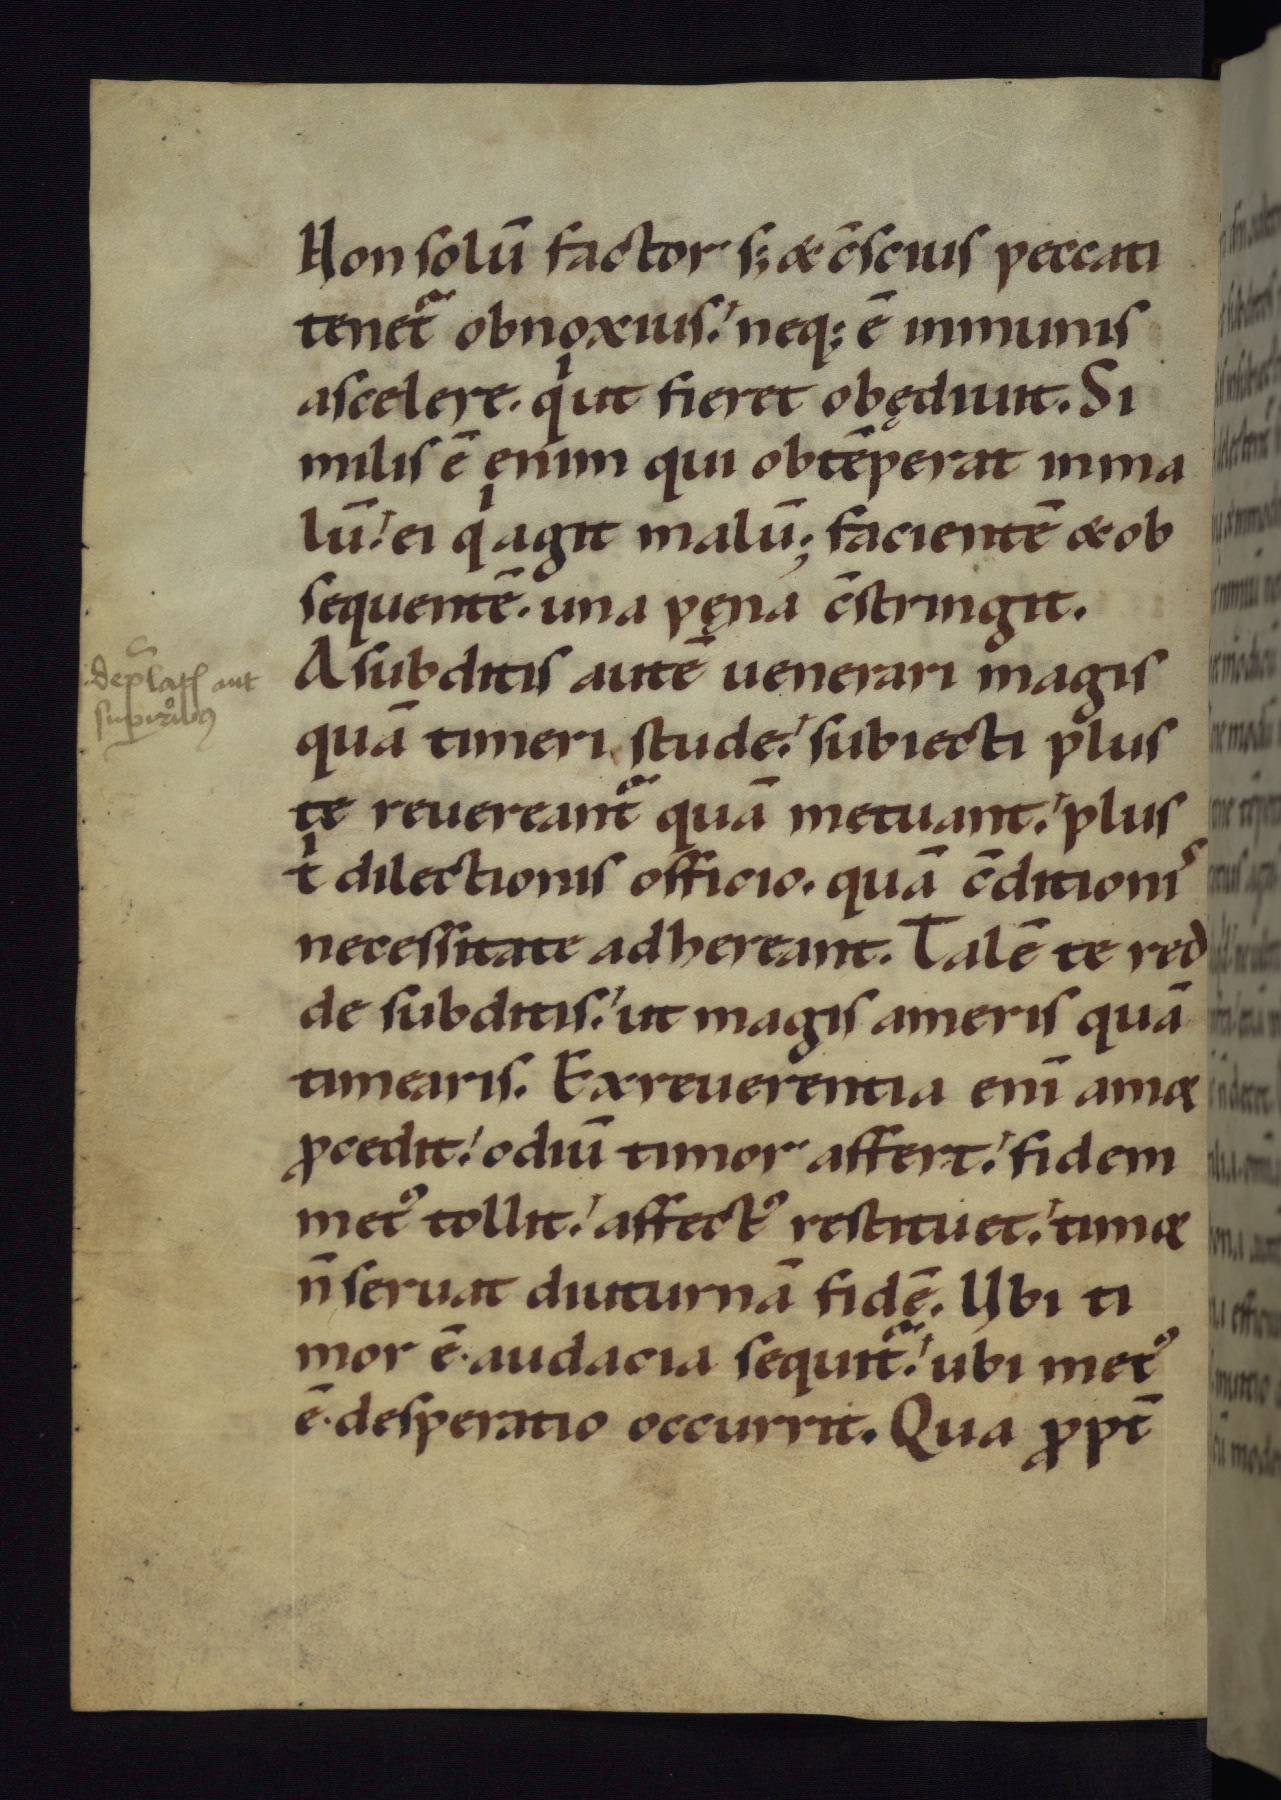 Non solū factor s; & c̄scius peccati
tenet᷑ obnoxius. neq; ē inmunis
a scelere. qͥ ut fieret obędiuit. Si
milis ē enim qui obtēperat in ma
lū. ei qͥ agit malū; facientē & ob
sequentē. una pęna c̄stringit.
A subditis autē uenerari magis
quā timeri stude. subiecti plus
te reuereant᷑ quā metuant. plus
tͥ dilectionis officio. quā c̄ditionis
necessitate adhereant. Talē te red
de subditis. ut magis ameris quā
timearis. Ex reuerentia enī amor
ꝓcedit. odiū timor affert. fidem
metꝰ tollit. affectꝰ restituet. timor
n̄ seruat diuturnā fidē. Ubi ti
mor ē. audacia sequit᷑. ubi metꝰ
ē. desperatio occurrit. Qua ꝓpt̄
de p̄latis aut
supioribꝰ